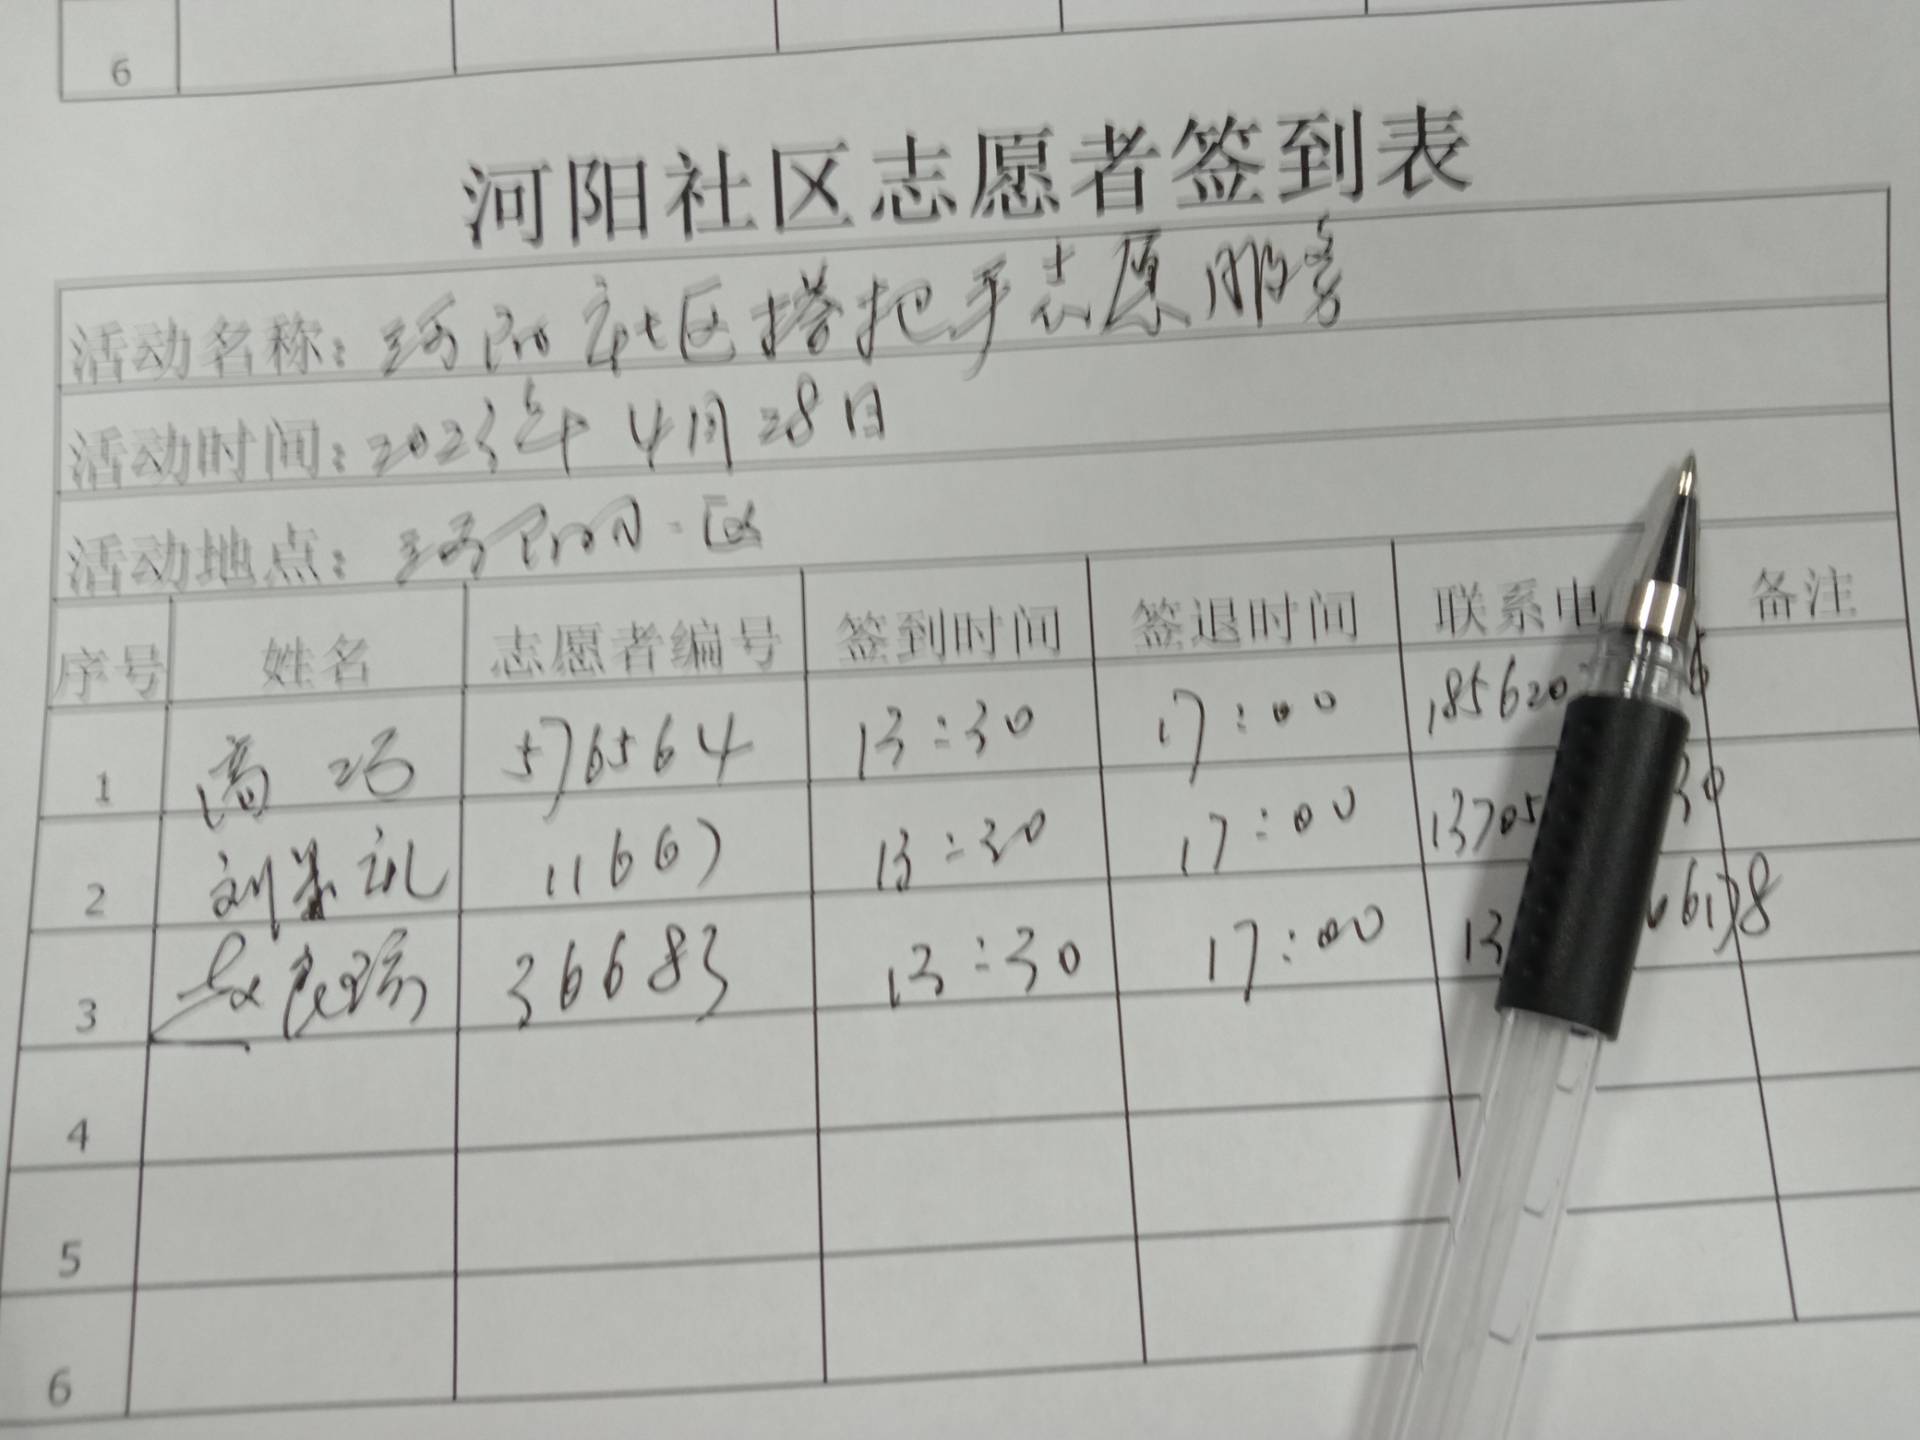 6
河阳社区志愿者签到表
活动名称：河阳社区搭把手志愿服务
活动时间：2023年4月28日
活动地点：河阳 区
序号 姓名 志愿者编号 签到时间 签退时间 联系电 备注
1 高巧 576564 13:30 17:00 185620
2 刘 礼 11667 13:30 17:00 13705 30
3 36683 13:30 17:00 13 66138
4
5
6